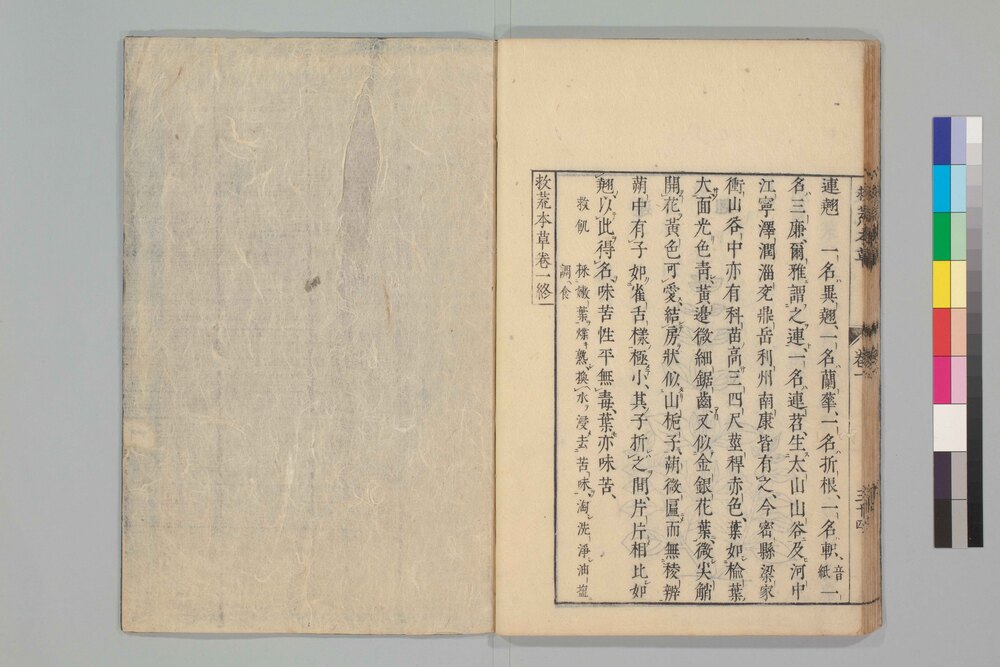 連翹　一名異翹、一名蘭華、一名折根、一名軹、音紙一
名三廉、爾雅謂之連、一名連苕、生太山山谷及河中
江寧澤潤淄兗鼎岳利州南康皆有之、今密縣梁家
衝山谷中亦有科苗高三四尺莖稈赤色、葉如榆葉
大面光色青黃邊微細鋸齒、又似金銀花葉、微尖艄
開花黃色可愛、結房狀似山梔子蒴微匾而無稜瓣
蒴中有子如雀舌樣極小、其子折之間、片片相比如
翹、以此得名味苦性平無毒、葉亦味苦、
救飢　採嫩葉煠熟換水浸去苦味、淘洗淨油鹽
調食
救荒本草卷一終
救荒本草
卷一
三十四